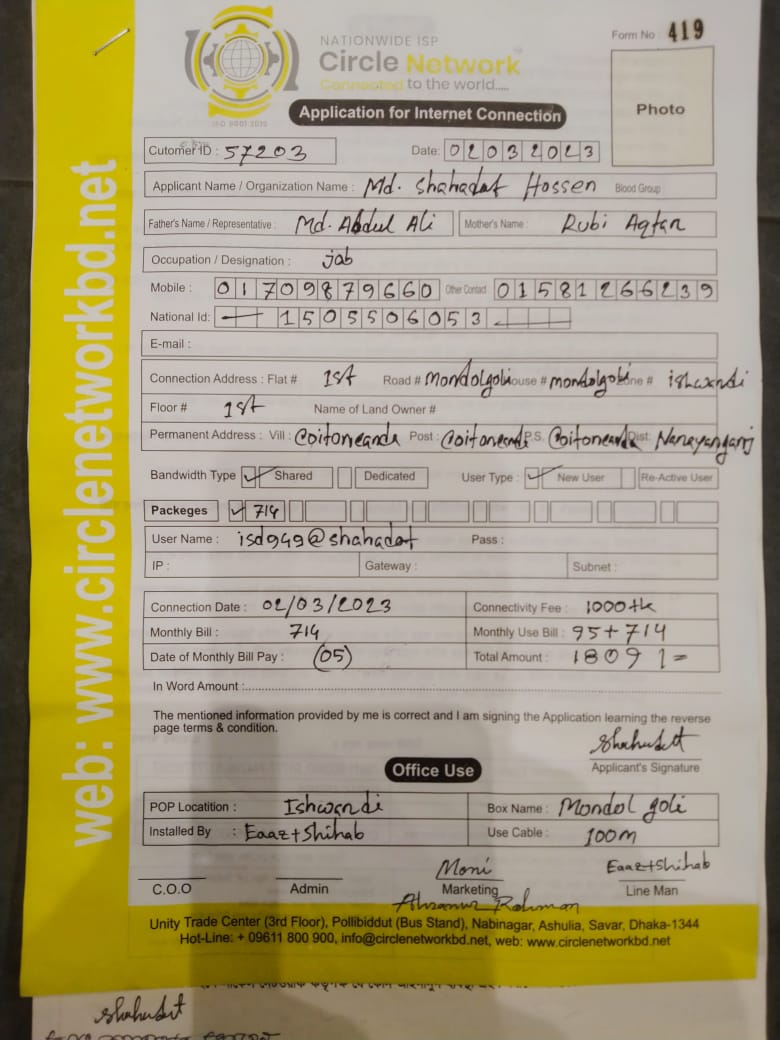 NATIONWIDE ISP
Circle Network
Connected to the world.....
ISO 9001:2015
Form No 419
Photo
Application for Internet Connection
Cutomer ID : 57203 Date: 02032023
Applicant Name / Organization Name : Md. Shahadat Hossen Blood Group
Father's Name / Representative : Md. Abdul Ali Mother's Name : Rubi Aqtar
Occupation / Designation : job
Mobile : 01709879660 Other Contact 01581266239
National Id: 1505506053
E-mail :
Connection Address : Flat # 1st Road # Mondolgoli ouse # mondolgoli one # ishwandi
Floor # 1st Name of Land Owner #
Permanent Address : Vill : Coitoneanda Post : Coitoneanda P.S. Coitoneanda Dist: Narayanganj
Bandwidth Type Shared Dedicated User Type : New User Re-Active User
Packeges 714
User Name : isd949@shahadat Pass :
IP : Gateway : Subnet :
Connection Date : 02/03/2023 Connectivity Fee : 1000tk
Monthly Bill : 714 Monthly Use Bill : 95+714
Date of Monthly Bill Pay : (05) Total Amount : 1809/=
In Word Amount :
The mentioned information provided by me is correct and I am signing the Application learning the reverse
page terms & condition.
Shahadat
Applicant's Signature
Office Use
POP Locatition : Ishwandi Box Name : Mondol goli
Installed By : Eaaz+Shihab Use Cable : 100m
Moni Eaaz+Shihab
C.O.O Admin Marketing Line Man
Ahsanur Rahman
Unity Trade Center (3rd Floor), Pollibiddut (Bus Stand), Nabinagar, Ashulia, Savar, Dhaka-1344
Hot-Line: + 09611 800 900, info@circlenetworkbd.net, web: www.circlenetworkbd.net
web: www.circlenetworkbd.net
Shahadat